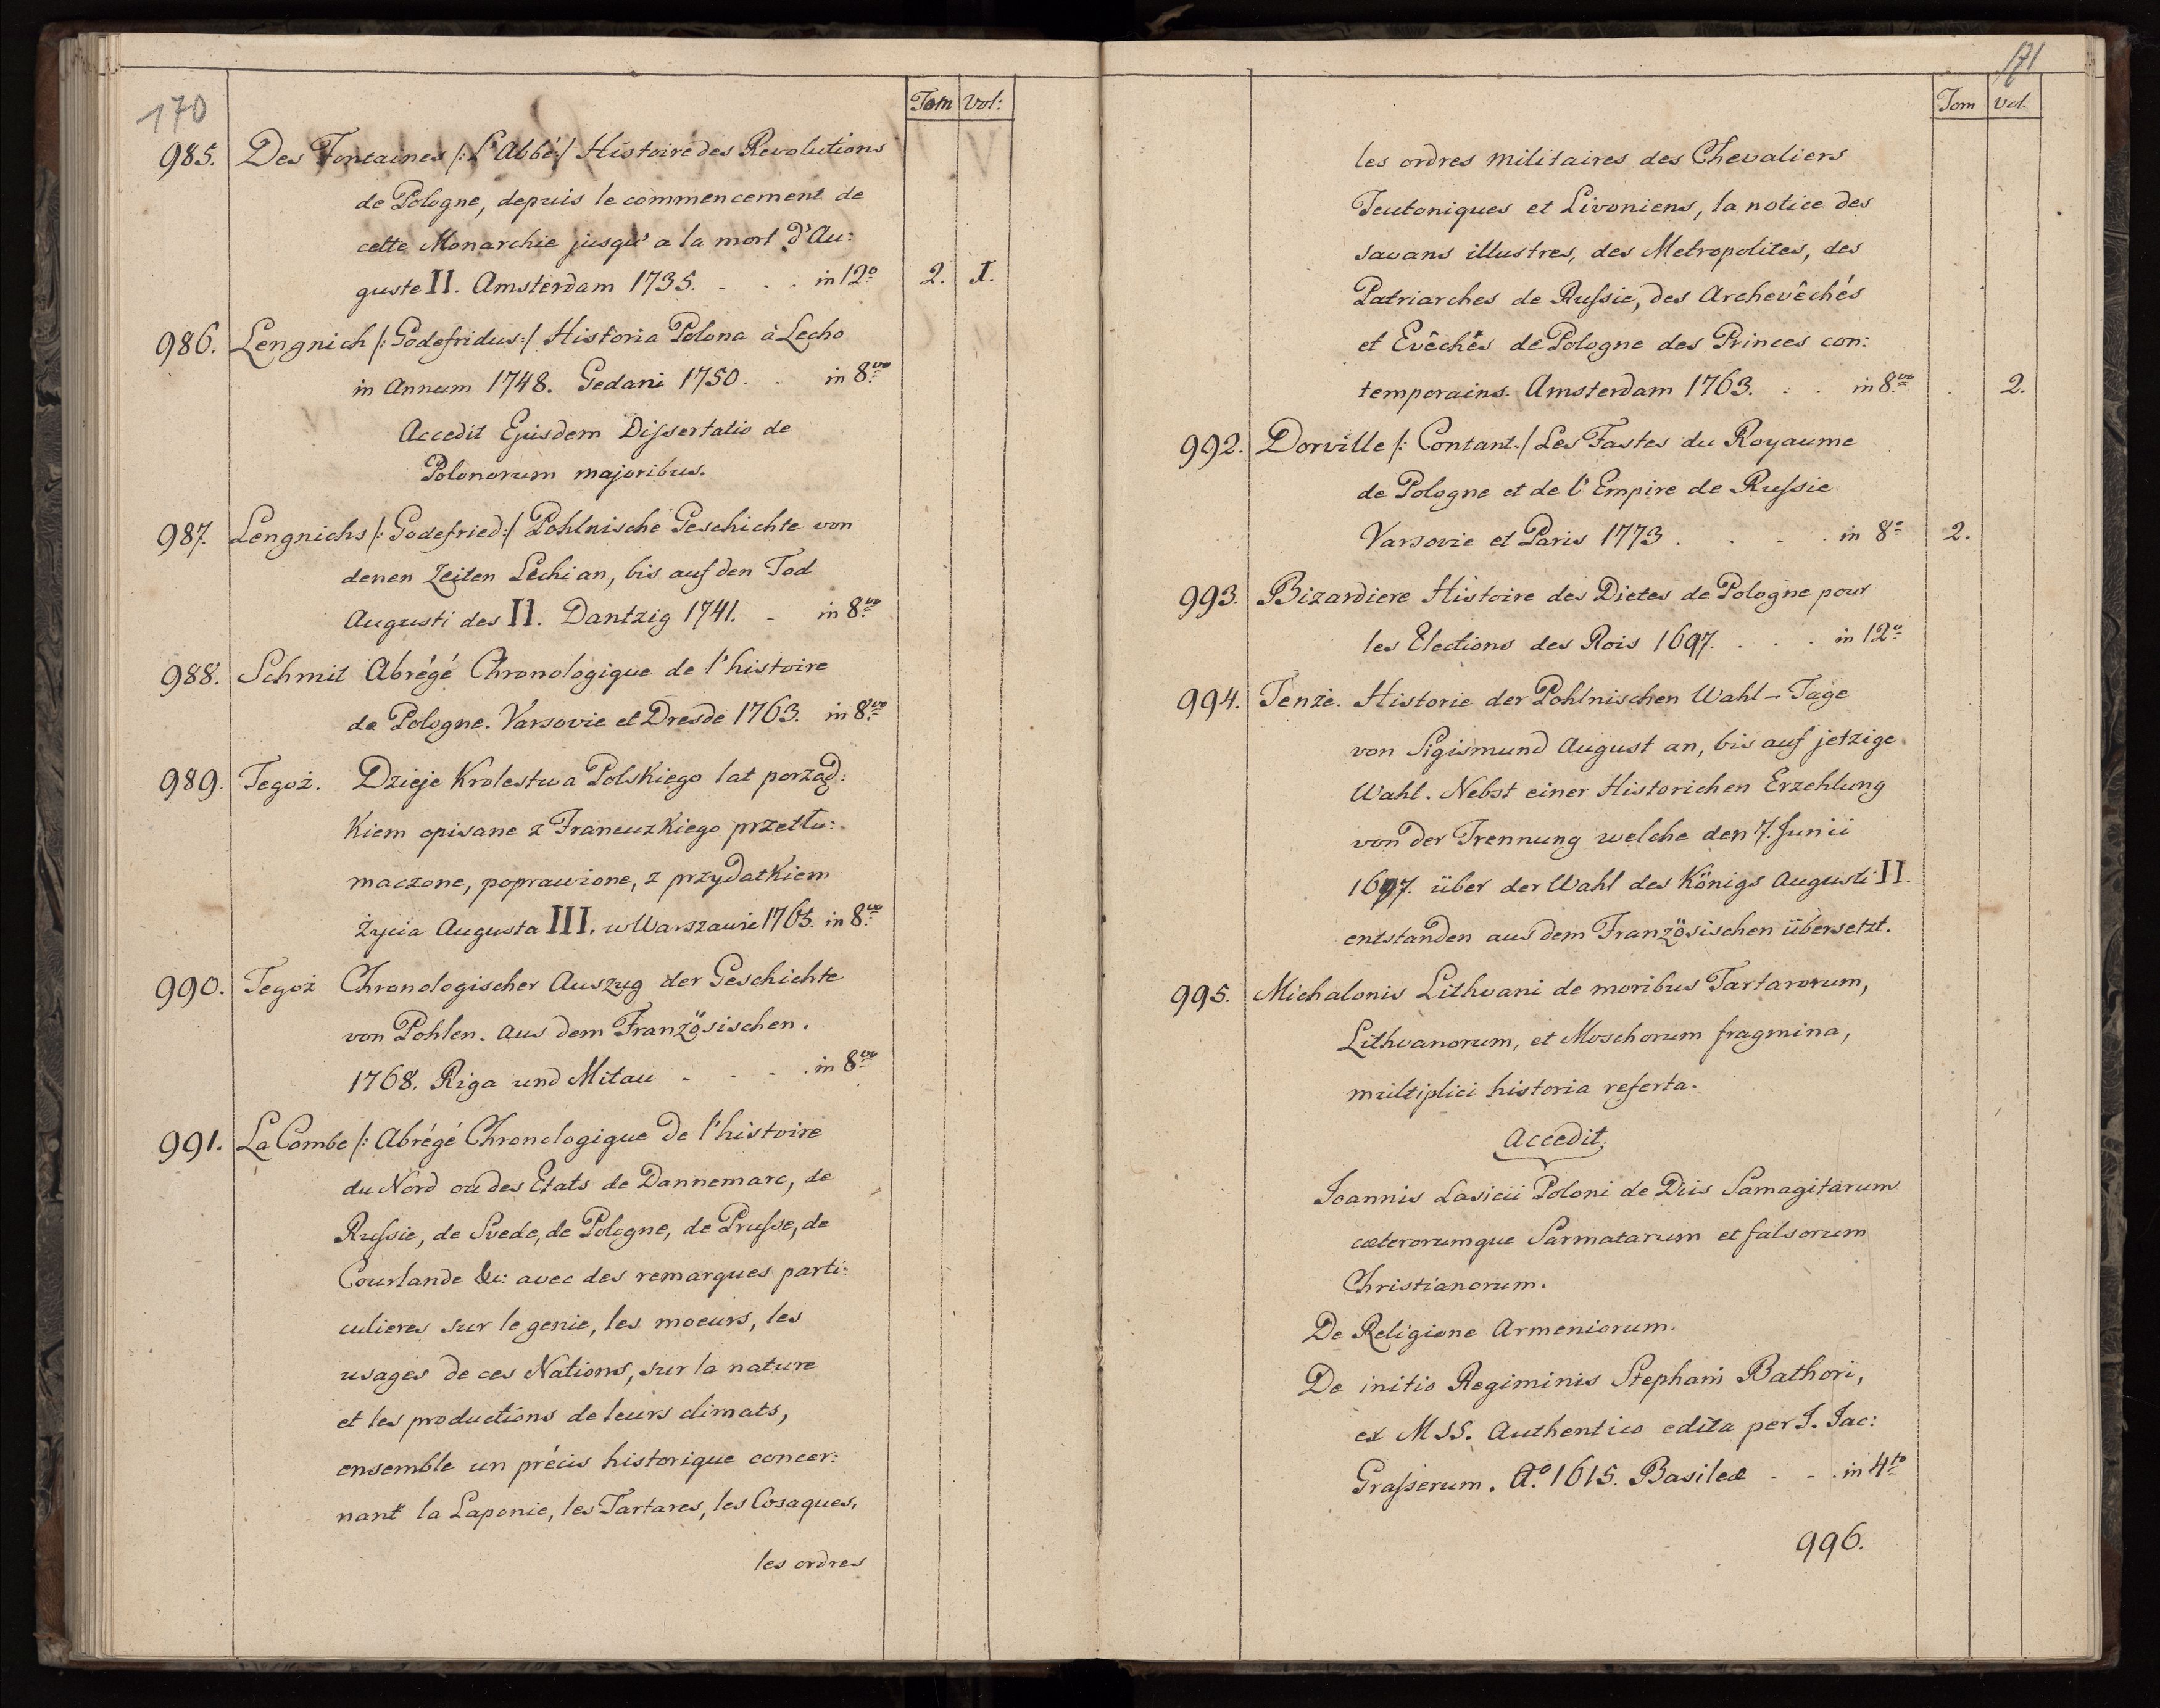 170
Tom Vol:
985. Des Fontaines /: L'Abbé :/ Histoire des Revolutions
de Pologne, depuis le commencement de
cette Monarchie jusqu'a la mort d'Au:
guste II. Amsterdam 1735. - . . in 12o 2. I.
986. Lengnich /: Godefridus :/ Historia Polona à Lecho
in Annum 1748. Gedani 1750. . in 8.vo
Accedit Ejusdem Dissertatio de
Polonorum majoribus.
987. Lengnichs /: Godefried :/ Pohlnische Geschichte von
denen Zeiten Lechi an, bis auf den Tod
Augusti des II. Dantzig 1741. - in 8.vo
988. Schmit Abrégé Chronologique de l'histoire
de Pologne. Varsovie et Dresde 1763. in 8.vo
989. Tegoż. Dzieje Krolestwa Polskiego lat porząd:
kiem opisane z Francuzkiego przetłu:
maczone, poprawione, z przydatkiem
życia Augusta III. w Warszawie 1765. in 8.vo
990. Tegoż Chronologischer Auszug der Geschichte
von Pohlen. Aus dem Französischen.
1768. Riga und Mitau - . - . in 8vo
991. La Combe /: Abrégé Chronologique de l'histoire
du Nord ou des Etats de Dannemarc, de
Russie, de Svede, de Pologne, de Prusse, de
Courlande &c: avec des remarques parti:
culieres sur le genie, les moeurs, les
usages de ces Nations, sur la nature
et les productions de leurs climats,
ensemble un précis historique concer:
nant la Laponie, les Tartares, les Cosaques,
les ordres
171
Tom Vol.
les ordres militaires des Chevaliers
Teutoniques et Livoniens, la notice des
savans illustres, des Metropolites, des
Patriarches de Russie, des Archevêchés
et Evêchés de Pologne des Princes con:
temporains. Amsterdam 1763. : . in 8vo . 2.
992. Dorville /: Contant :/ Les Fastes du Royaume
de Pologne et de l'Empire de Russie
Varsovie et Paris 1773 . . . . in 8o 2.
993. Bizardiere Histoire des Dietes de Pologne pour
les Elections des Rois 1697. . . . in 12o
994. Tenże. Historie der Pohlnischen Wahl-Tage
von Sigismund August an, bis auf jetzige
Wahl. Nebst einer Historichen Erzehlung
von der Trennung welche den 7. Junii
1697. über der Wahl des Königs Augusti II.
entstanden aus dem Französischen übersetzt.
995. Michalonis Lithvani de moribus Tartarorum,
Lithvanorum, et Moschorum fragmina,
multiplici historia referta.
Accedit.
Joannis Lasicii Poloni de Diis Samagitarum
cæterorumque Sarmatarum et falsorum
Christianorum.
De Religione Armeniorum.
De initio Regiminis Stephani Bathori,
ex MSS. Authentico edita per J. Jac:
Grasserum. Ao. 1615. Basileæ - - . in 4to
996.